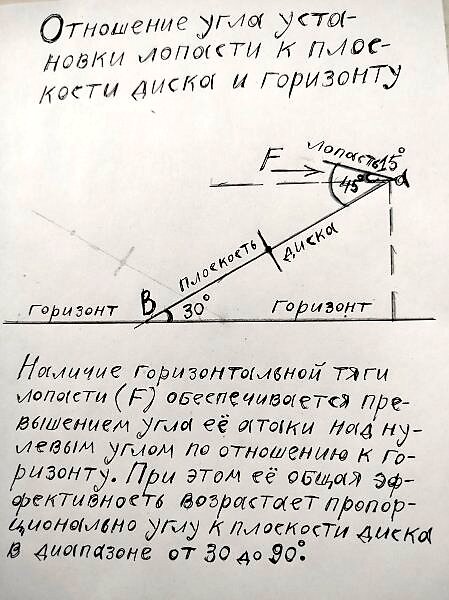 Отношение угла уста-
новки лопасти к плос-
кости диска и горизонту
F
лопасть
15°
45°
α
плоскость
диска
B
30°
горизонт
горизонт
Наличие горизонтальной тяги
лопасти (F) обеспечивается пре-
вышением угла её атаки над ну-
левым углом по отношению к го-
ризонту. При этом её общая эф-
фективность возрастает пропор-
ционально углу к плоскости диска
в диапазоне от 30 до 90°.